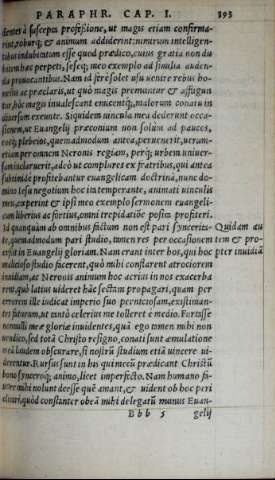 PARAPHR. CAP. I. 393
dentes à suscepta professione, ut magis etiam confirma-
rint, roburq; & animum addiderint: nimirum intelligen-
tibus indubitatum esse quod prædico, cuius gratia non du
bitem hæc perpeti, seseq; meo exemplo ad similia auden-
da prouocantibus. Nam id ferè solet usu uenire rebus ho-
nestis ac præclaris, ut quò magis premuntur & affligun
tur, hoc magis inualescant emicentq;, malorum conatu in
diuersum exeunte. Siquidem uincula mea dederunt occa-
sionem, ut Euangelij præconium non solum ad paucos,
eosq; plebeios, quemadmodum antea, peruenerit, uerum-
etiam per omnem Neronis regiam, perq; urbem uniuer-
sam inclaruerit, adeò ut complures ex fratribus, qui antea
subtimidè profitebantur euangelicam doctrinã, nunc do-
mino Iesu negotium hoc ita temperante, animati uinculis
meis, cœperint & ipsi meo exemplo sermonem euangeli-
cum liberius ac fortius, omni trepidatiõe posita profiteri.
Id quanquàm ab omnibus fictum non est pari synceritа- Quidam au
te, quemadmodum pari studio, tamen res per occasionem tem & pro-
cessit in Euangelij gloriam. Nam erant inter hos, qui hoc pter inuidiã
malitioso studio facerent, quò mihi conflarent atrociorem
inuidiam, ac Neronis animum hoc acrius in nos exacerba
rent, quò latius uideret hãc sectam propagari, quam per
errorem ille iudicat imperio suo perniciosam, existiman-
tes futurum, ut tantò celerius me tolleret è medio. Fortasse
nonnulli meæ gloriæ inuidentes, quã ego tamen mihi non
uendico, sed totã Christo resigno, conati sunt æmulatione
mei laudem obscurare, si nostrũ studium etiã uincere ui-
derentur. Rursus sunt in his qui mecũ prædicant Christũ
bono synceroq; animo, licet imperfecto. Nam humano fa-
uore mihi nolunt deesse quẽ amant, & uident ob hoc peri
clitari, quòd constanter obeã mihi delegatũ munus Euan-
Bbb 5 gelij